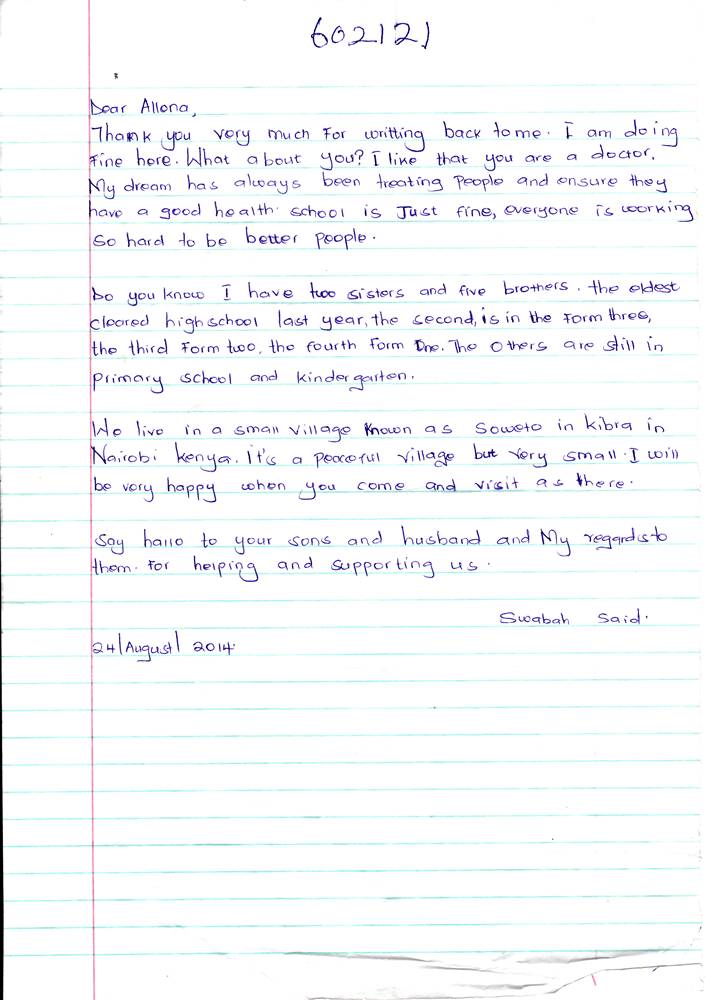 602121
Dear Allona,
Thank you very much for writting back to me. I am doing
fine here. What about you? I like that you are a doctor.
My dream has always been treating people and ensure they
have a good health. school is Just fine, everyone is working
so hard to be better people.
Do you know I have two sisters and five brothers. the eldest
cleared highschool last year, the second, is in the Form three,
the third Form two, the fourth Form One. The others are still in
primary school and kindergarten.
We live in a small village known as Soweto in Kibra in
Nairobi Kenya. It's a peaceful village but very small. I will
be very happy when you come and visit as there.
Say hallo to your sons and husband and My regards to
them. for helping and supporting us.
Swabah Said.
24/August/ 2014.